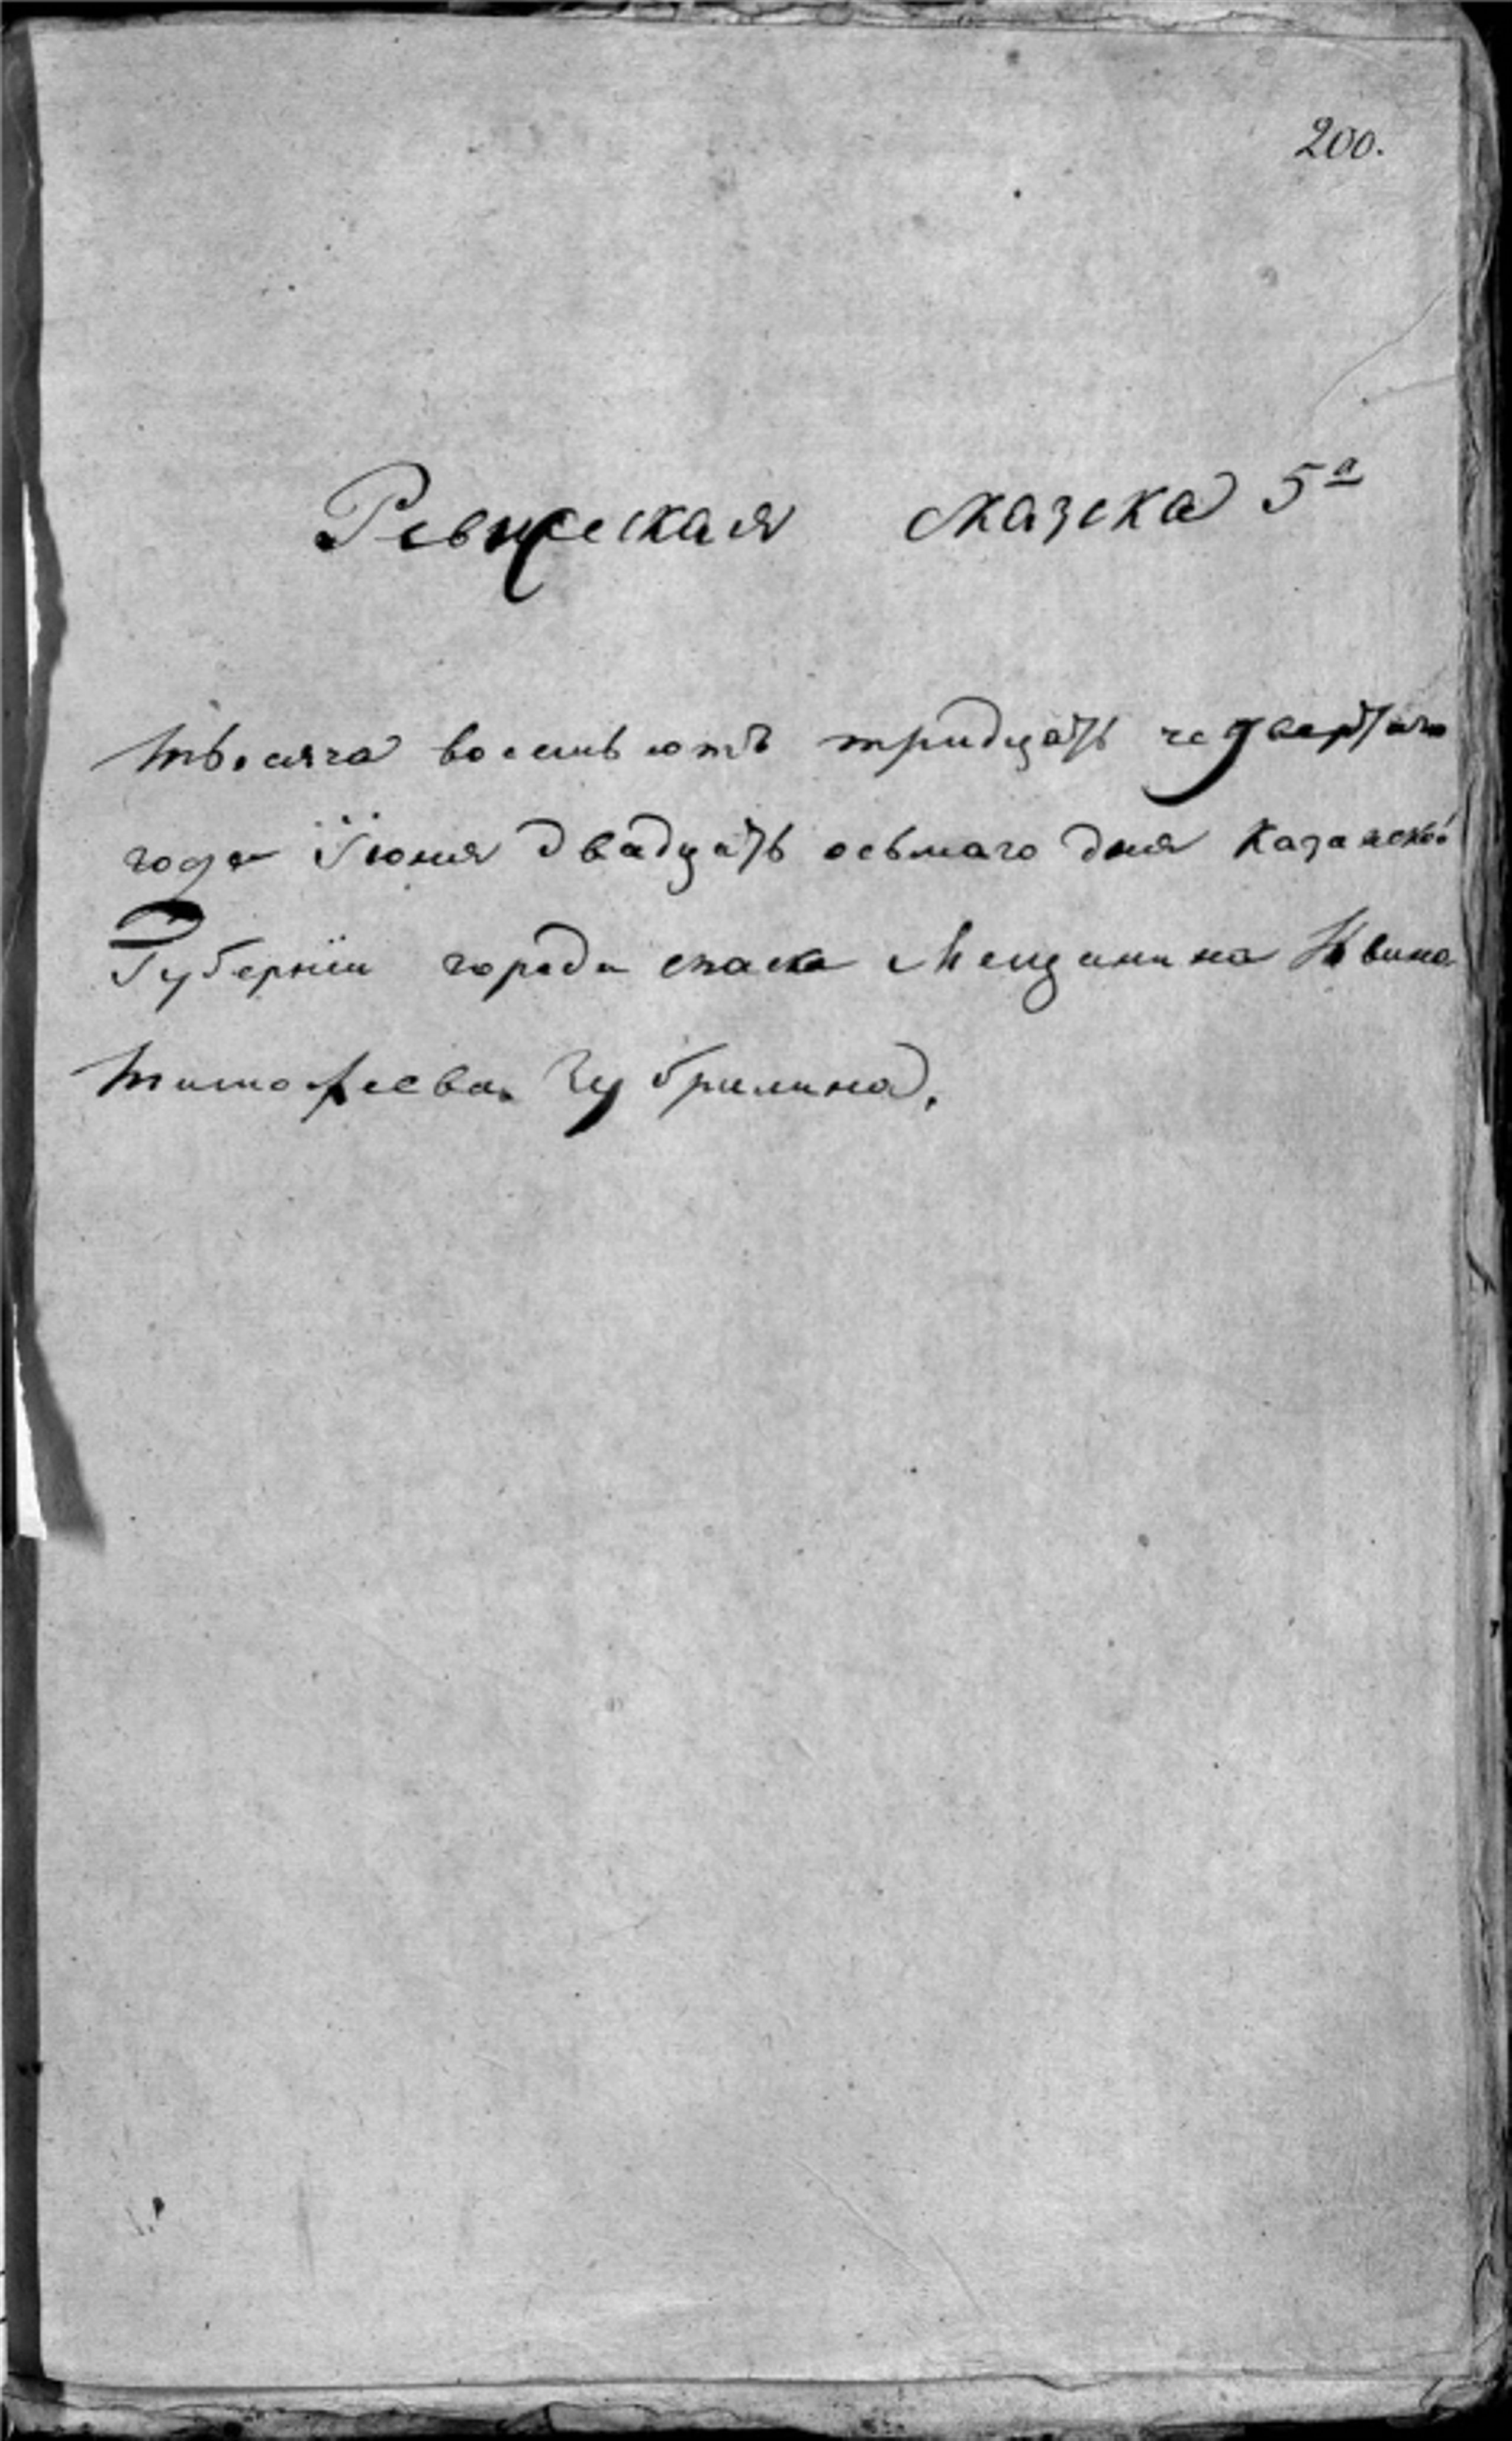 200.
Ревижеская сказска 5а
тысяча восемьсотъ тридцать четвертаго
года Їюня двадцать осьмаго дня Казанской
Губернїи города спаска Мещанина
тимофеева Чубрилина,